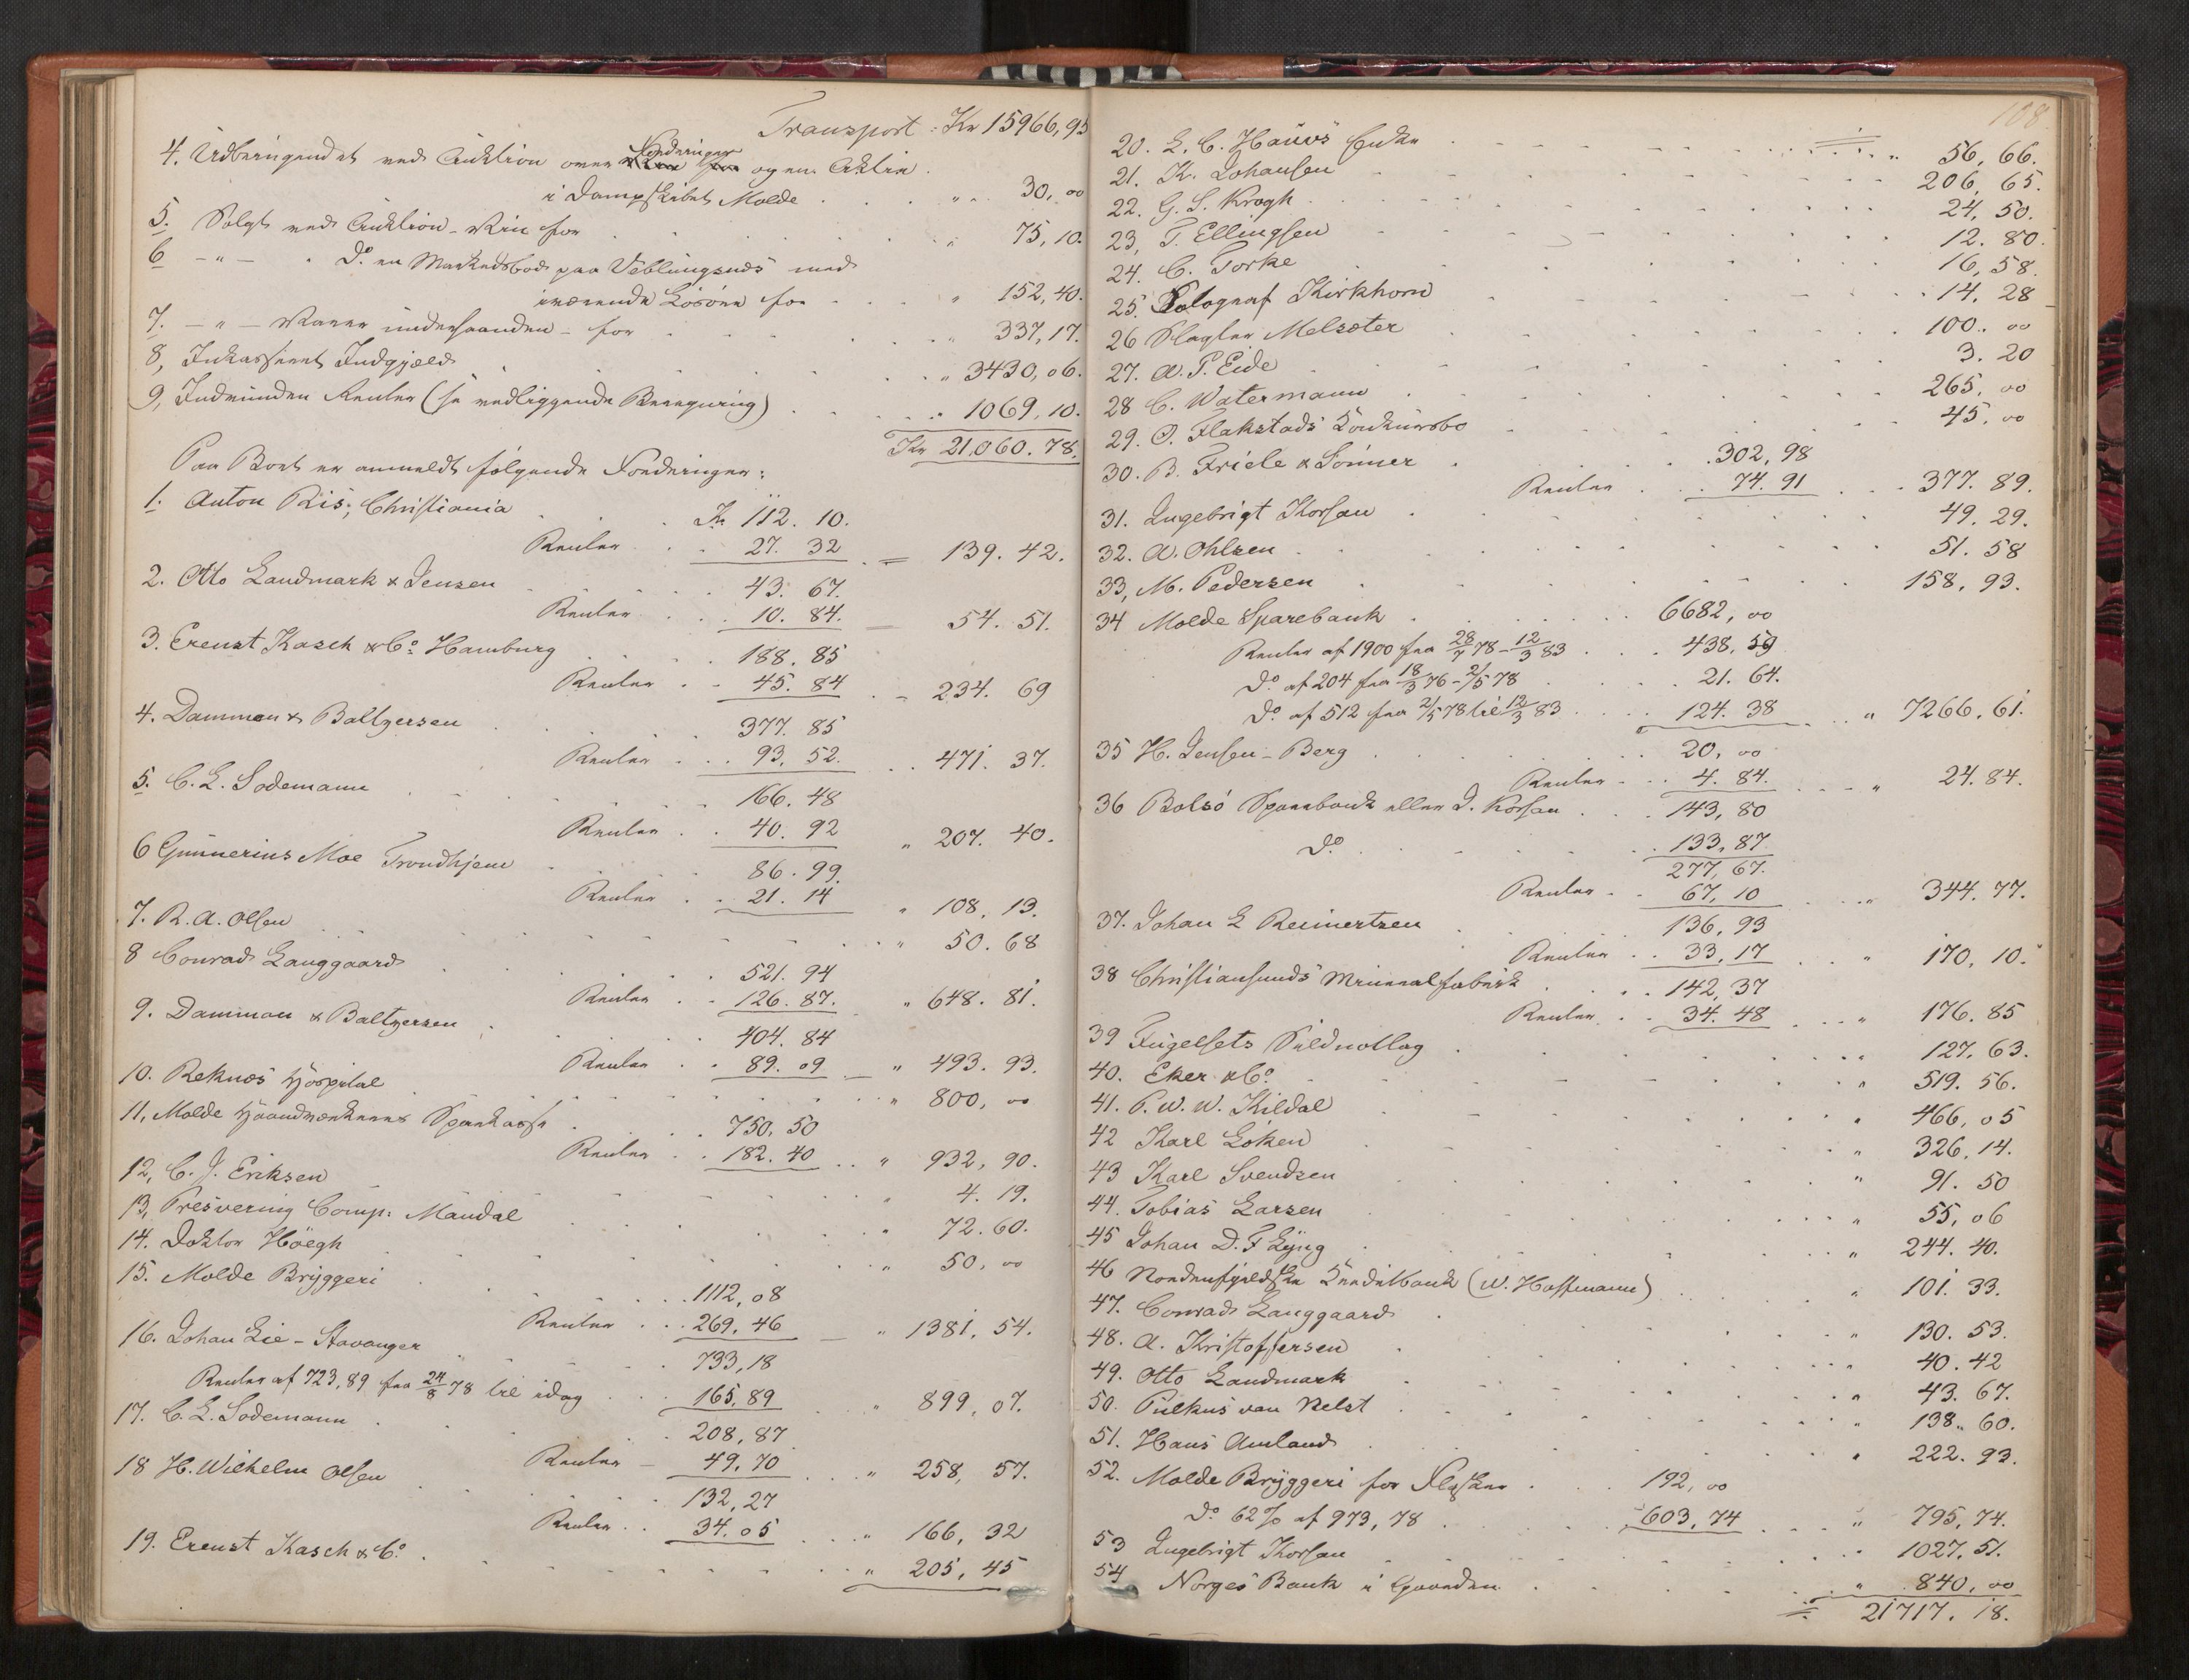 Transport: Kr 15966,95
4. Udbringendet ved Auktion over Fordringer og en Aktie
i Dampskibet Molde . . . " 30,00
5. Solgt ved Auktion - Vin for . . . " 75,10.
6 - " - " Do. en Markedsbod paa Veblungsnes med
iværende Løsøre for . . . " 152,40.
7. - " - Varer underhaanden - for . . . " 337,17.
8, Inkasseret Indgjæld . . . " 3430,06.
9, Indvundne Renter (se vedliggende Beregning) . . . " 1069,10.
Kr 21,060.78.
Paa Boet er anmeldt følgende Fordringer:
1. Anton Ris, Christiania . . . Kr 112.10.
Renter . . 27.32 = 139.42.
2. Otto Landmark & Jensen . . . 43.67.
Renter . . 10.84. = 54.51.
3. Ernst Kasch & Co. Hamburg . . . 188.85
Renter . . 45.84 - 234.69
4. Damman & Baltzersen . . . 377.85
Renter . . 93.52. . . 471.37.
5. C. L. Sodemann . . . 166.48
Renter . . 40.92 " 207.40.
6 Gunnerius Moe Trondhjem . . . 86.99.
Renter . . 21.14 " 108.13.
7. R. A. Olsen . . . " 50.68
8 Conrad Langgaard . . . 521.94
Renter . . 126.87. " 648.81.
9. Damman & Baltzersen . . . 404.84
Renter . . 89.09 - " 493.93.
10. Reknæs Hospital . . . " 800,00
11, Molde Haandværkeres Sparekasse . . . 750,50
Renter . . 182.40 . . " 932,90.
12, C. J. Eriksen . . . " 4.19.
13, Presvering Comp: Mandal . . . " 72.60.
14. Doktor Höegh . . . " 50,00
15. Molde Bryggeri . . . 1112,08
Renter . . 269.46 - " 1381,54.
16. Johan Lie - Stavanger . . . 733,18
Renter af 723,89 fra 24/8 78 til idag . . . 165,89 " 899,07.
17. C. L. Sodemann . . . 208,87
Renter - 49,70 . . " 258,57.
18 H. Wilhelm Olsen . . . 132,27
Renter . . 34.05 . . " 166,32
19. Ernst Kasch & Co. . . . " 205,45
108
20. L. C. Hauvs Enke . . . " 56,66.
21. K. Johansen . . . 206,65.
22. G. S. Krogh . . . 24,50.
23, T. Ellingsen . . . 12.80.
24. C. Torke . . . 16,58.
25. Fotograf Kirkhorn . . . 14,28
26 Slagter Melsæter . . . 100.00
27. A. P. Eide . . . 3.20
28 C. Watermann . . . 265,00
29. O. Flakstads Konkursbo . . . 45,00
30. B. Friele & Sönner . . . 302,98
Renter . . 74.91 . . . 377.89.
31. Ingebrigt Korsan . . . 49.29.
32. A. Ohlsen . . . 51.58
33, M. Pedersen . . . 158,93.
34 Molde Sparebank . . . 6682,00
Renter af 1900 fra 28/7 78 - 12/3 83 . . . 438,59
Do. af 204 fra 18/3 76 - 2/5 78 . . . 21.64.
Do. af 512 fra 2/5 78 til 12/3 83 . . . 124.38 . . " 7266,61.
35 H. Jensen - Berg . . . 20,00
Renter - . . 4.84. . . . " 24.84.
36 Bolsö Sparebank eller I. Korsan . . . 143,80
Do. . . . 133,87.
277,67.
Renter . . 67,10 . . . " 344.77.
37. Johan L Reinertzen . . . 136,93
Renter . . 33,17 . . " 170,10.
38 Christiansunds Mineralfabrik . . . 142,37
Renter . . 34.48 . . . " 176.85
39 Fugelsets Sildnotlag . . . " 127,63.
40. Eker & Co. . . . " 519.56.
41. P. W. W. Kildal . . . " 466,05
42 Karl Löken . . . " 326,14.
43 Karl Svendsen . . . " 91.50
44. Tobias Larsen . . . " 55,06
45 Johan D. F. Lyng . . . " 244.40.
46 Nordenfjeldske Kreditbank (W. Hoffmann) . . . " 101.33.
47. Conrad Langgaard . . . " 130.53.
48. A. Kristoffersen . . . " 40.42
49. Otto Landmark . . . " 43.67.
50. Pulkus van Nelst . . . " 138.60.
51. Hans Amland . . . " 222.93.
52. Molde Bryggeri for Flasker . . . 192,00
Do. 62% af 973,78 . . . 603,74 . . . " 795,74.
53 Ingebrigt Korsan . . . 1027.51.
54 Norges Bank i . . . " 840,00
21717.18.